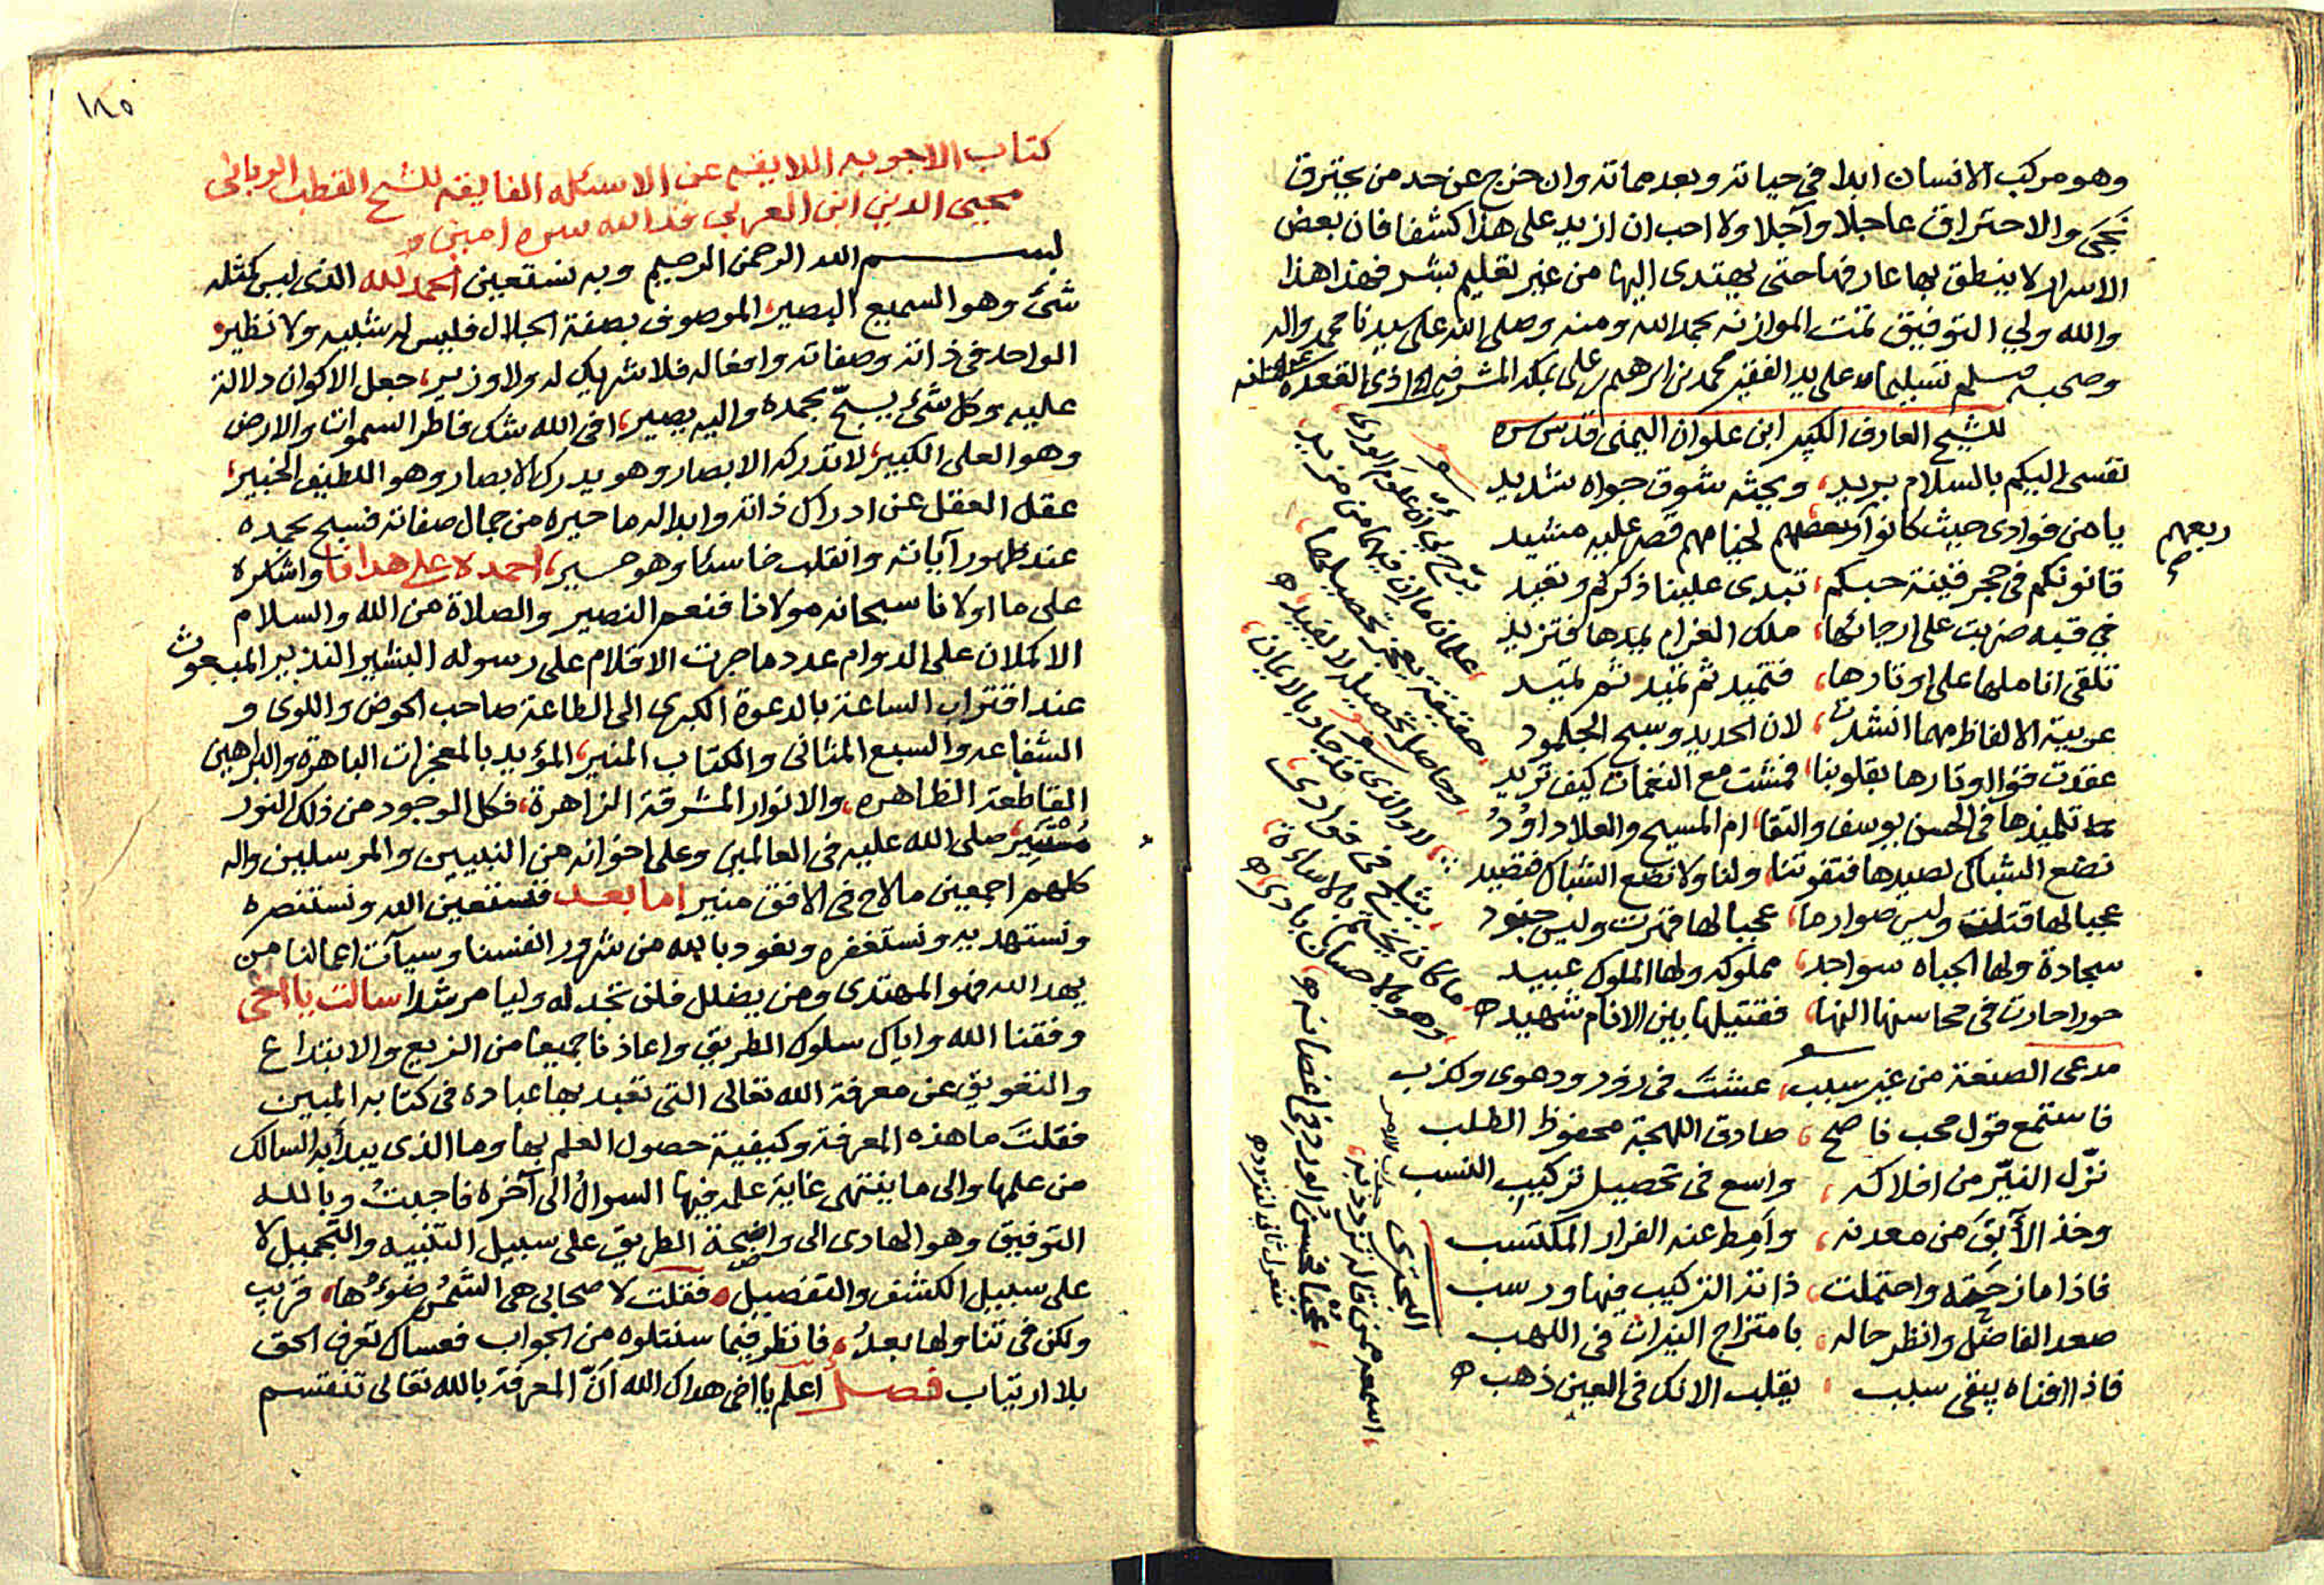 وهو مركب الانسان ابدا في حياته وبعد مماته وان خرج عن حد من يحترق
نجى والاحتراق عاجلا وآجلا ولا احب ان ازيد على هذا كشفا فان بعض
الاسرار لا ينطق بها عارفها حتى يهتدى اليها من غير تعليم بشر فهذا هذا
والله ولي التوفيق تمت الموازنه بحمد الله ومنه وصلى الله على سيدنا محمد واله
وصحبه وسلم تسليما على يد الفقير محمد بن ابرهيم بمكه المشرفه ذى القعده
للشيخ العارف الكبير ابن علوان اليمنى قدس سره
نفسى اليكم بالسلام بريد، ويحثه شوق جواه شديد
يا من فوادى حيث كانوا لخيامهم قصر عليه مشيد
ربعهم
قانونكم فى حجر قينة حبكم، تبدى علينا ذكركم وتعيد
في قبه ضربت على ارجائها، ملك الغرام يمدها فتزيد
تلقى اناملها على اوتارها، فتميد ثم تميد ثم تميد
عربية الالفاظ مهما انشدت، لان الحديد وسبح الجلمود
عقدت قوا اوتارها بقلوبنا، فمشت مع النغمات كيف تريد
تلميذها فى الحسن يوسف والتقا، ام المسيح والعلا داوُدُ
نضع الشباك لصيدها فتفوتنا، ولنا ولا تضع الشباك فتصيد
عجبا لها قتلت وليس صوارما، عجبا لها قهرت وليس جنود
سجادة ولها الجباه سواجد، مملوكه ولها الملوك عبيد
حورا حارت فى محاسنها النها، فقتيلها بين الانام شهيد
مدعى الصنعة من غير سبب، عشتَ فى زور ودعوى وكذب
فاستمع قول محب ناصح، صادق اللهجة محفوظ الطلب
نزّل النيّر من افلاكه، واسع فى تحصيل تركيب النسب
وخذ الآبَقَ من معدنه، وأمط عنه الفرار المكتسب
فاذا مازجَتْه واحتملت، ذاته التركيب فيها ورسب
صعد الفاضل وانظر حاله، بامتزاج النيران فى اللهب
فاذا افناه يبقى سبب، يقلب الانك فى العين ذهب
١٨٥
كتاب الاجوبه اللايقه عن الاسئله الفايقه للشيخ القطب الربانى
محيى الدين ابن العربى قدا الله سره امين
بسم الله الرحمن الرحيم وبه نستعين الحمد لله الذى ليس كمثله
شئ وهو السميع البصير، الموصوف بصفة الجلال فليس له شبيه ولا نظير
الواحد فى ذاته وصفاته وافعاله فلا شريك له ولا وزير، جعل الاكوان دلالة
عليه وكل شئ يسبّح بحمده واليه يصير، افى الله شك فاطر السموات والارض
وهو العلى الكبير، لا تدركه الابصار وهو يدرك الابصار وهو اللطيف الخبير،
عقل العقل عن ادراك ذاته وابدا له ما حيره من جمال صفاته فسبح بحمده
عند ظهور آياته وانقلب خاسئا وهو حسير، احمده على هدانا واشكره
على ما اولانا سبحانه مولانا فنعم النصير والصلاة من الله والسلام
الاكملان على الدوام عدد ما جرت الاقلام على رسوله البشير النذير المبعوث
عند اقتراب الساعة بالدعوة الكبرى الى الطاعة صاحب الحوض واللوى و
الشفاعه والسبع المثانى والكتاب المنير، المؤيد بالمعجزات الباهرة والبراهين
القاطعة الظاهره، والانوار المشرقة الزاهرة، فكل الوجود من ذلك النور
مُسْتَنِيرٌ، صلى الله عليه فى العالمين وعلى اخوانه من النبيين والمرسلين واله
كلهم اجمعين ما لاح فى الافق منير اما بعد فنستعين الله ونستنصره
ونستهديه ونستغفره ونعوذ بالله من شرور انفسنا وسيآت اعمالنا من
يهد الله فهو المهتدى ومن يضلل فلن تجد له وليا مرشدا سالت يا اخى
وفقنا الله واياك سلوك الطريق واعاذنا جميعا من الزيع والابتداع
والتعويق عن معرفة الله تعالى التى تعبد بها عباده فى كتابه المبين
فقلتَ ما هذه المعرفة وكيفية حصول العلم بها وما الذى يبدأ به السالك
من علمها والى ما ينتهى غاية علمه فيها السوال الى آخره فاجبتُ وبالله
التوفيق وهو الهادى الى واضحة الطريق على سبيل التنبيه والتجميل لا
على سبيل الكشف والتفصيل فقلت لاصحابى هى الشمس ضوءُها، قريب
ولكن فى تناولها بعدُ، فانظر فيما سنتلوه من الجواب فعساك تعرف الحق
بلا ارتياب فصل اعلم يا اخى هداك الله انّ المعرفة بالله تعالى تنقسم